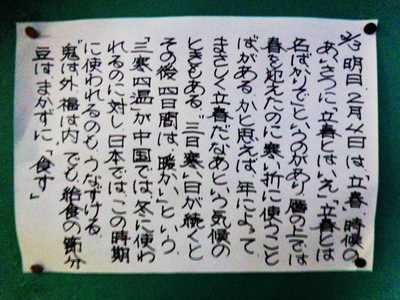 2/3 明日2月4日は「立春」時候の
あいさつに「立春とはいえ」「立春とは
名ばかりで」というのがあり暦の上では
春を迎えたのに寒い折に使うこと
ばがあるかと思えば、年によって
まさしく立春だなあという気候の
ときもある。「三日寒い日が続くと
その後四日間は、暖かい」という
「三寒四温」が中国では、冬に使わ
れるのに対し日本では、この時期
に使われるのも、うなずける。
鬼は外 福は内 でも給食の節分
豆は、まかずに、「食す」